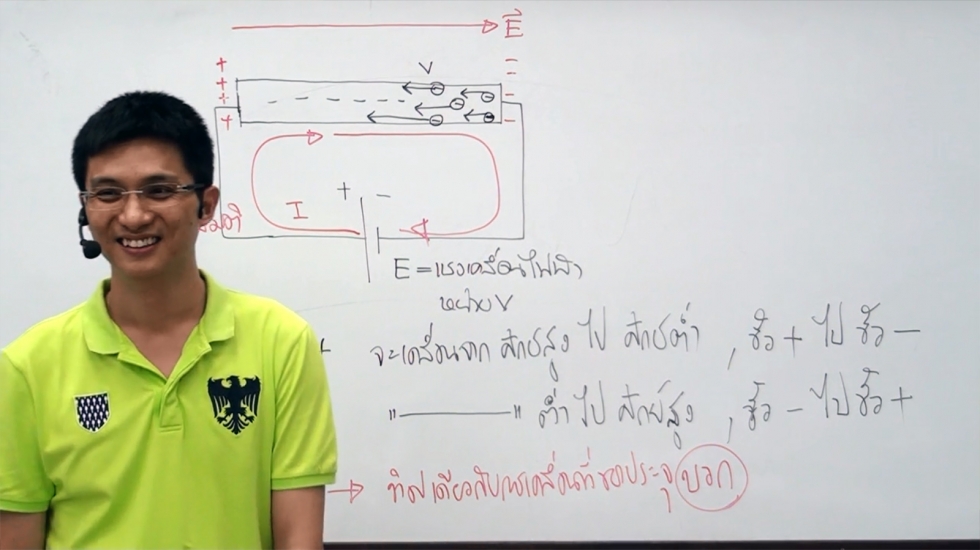 E
+ + + +
− − − −
V
+ −
I
E = แรงเคลื่อนไฟฟ้า
หน่วย V
จะเคลื่อนจาก ศักย์สูง ไป ศักย์ต่ำ , ขั้ว + ไป ขั้ว −
"————" ต่ำ ไป ศักย์สูง , ขั้ว − ไป ขั้ว +
→ ทิศเดียวกับการเคลื่อนที่ของประจุบวก